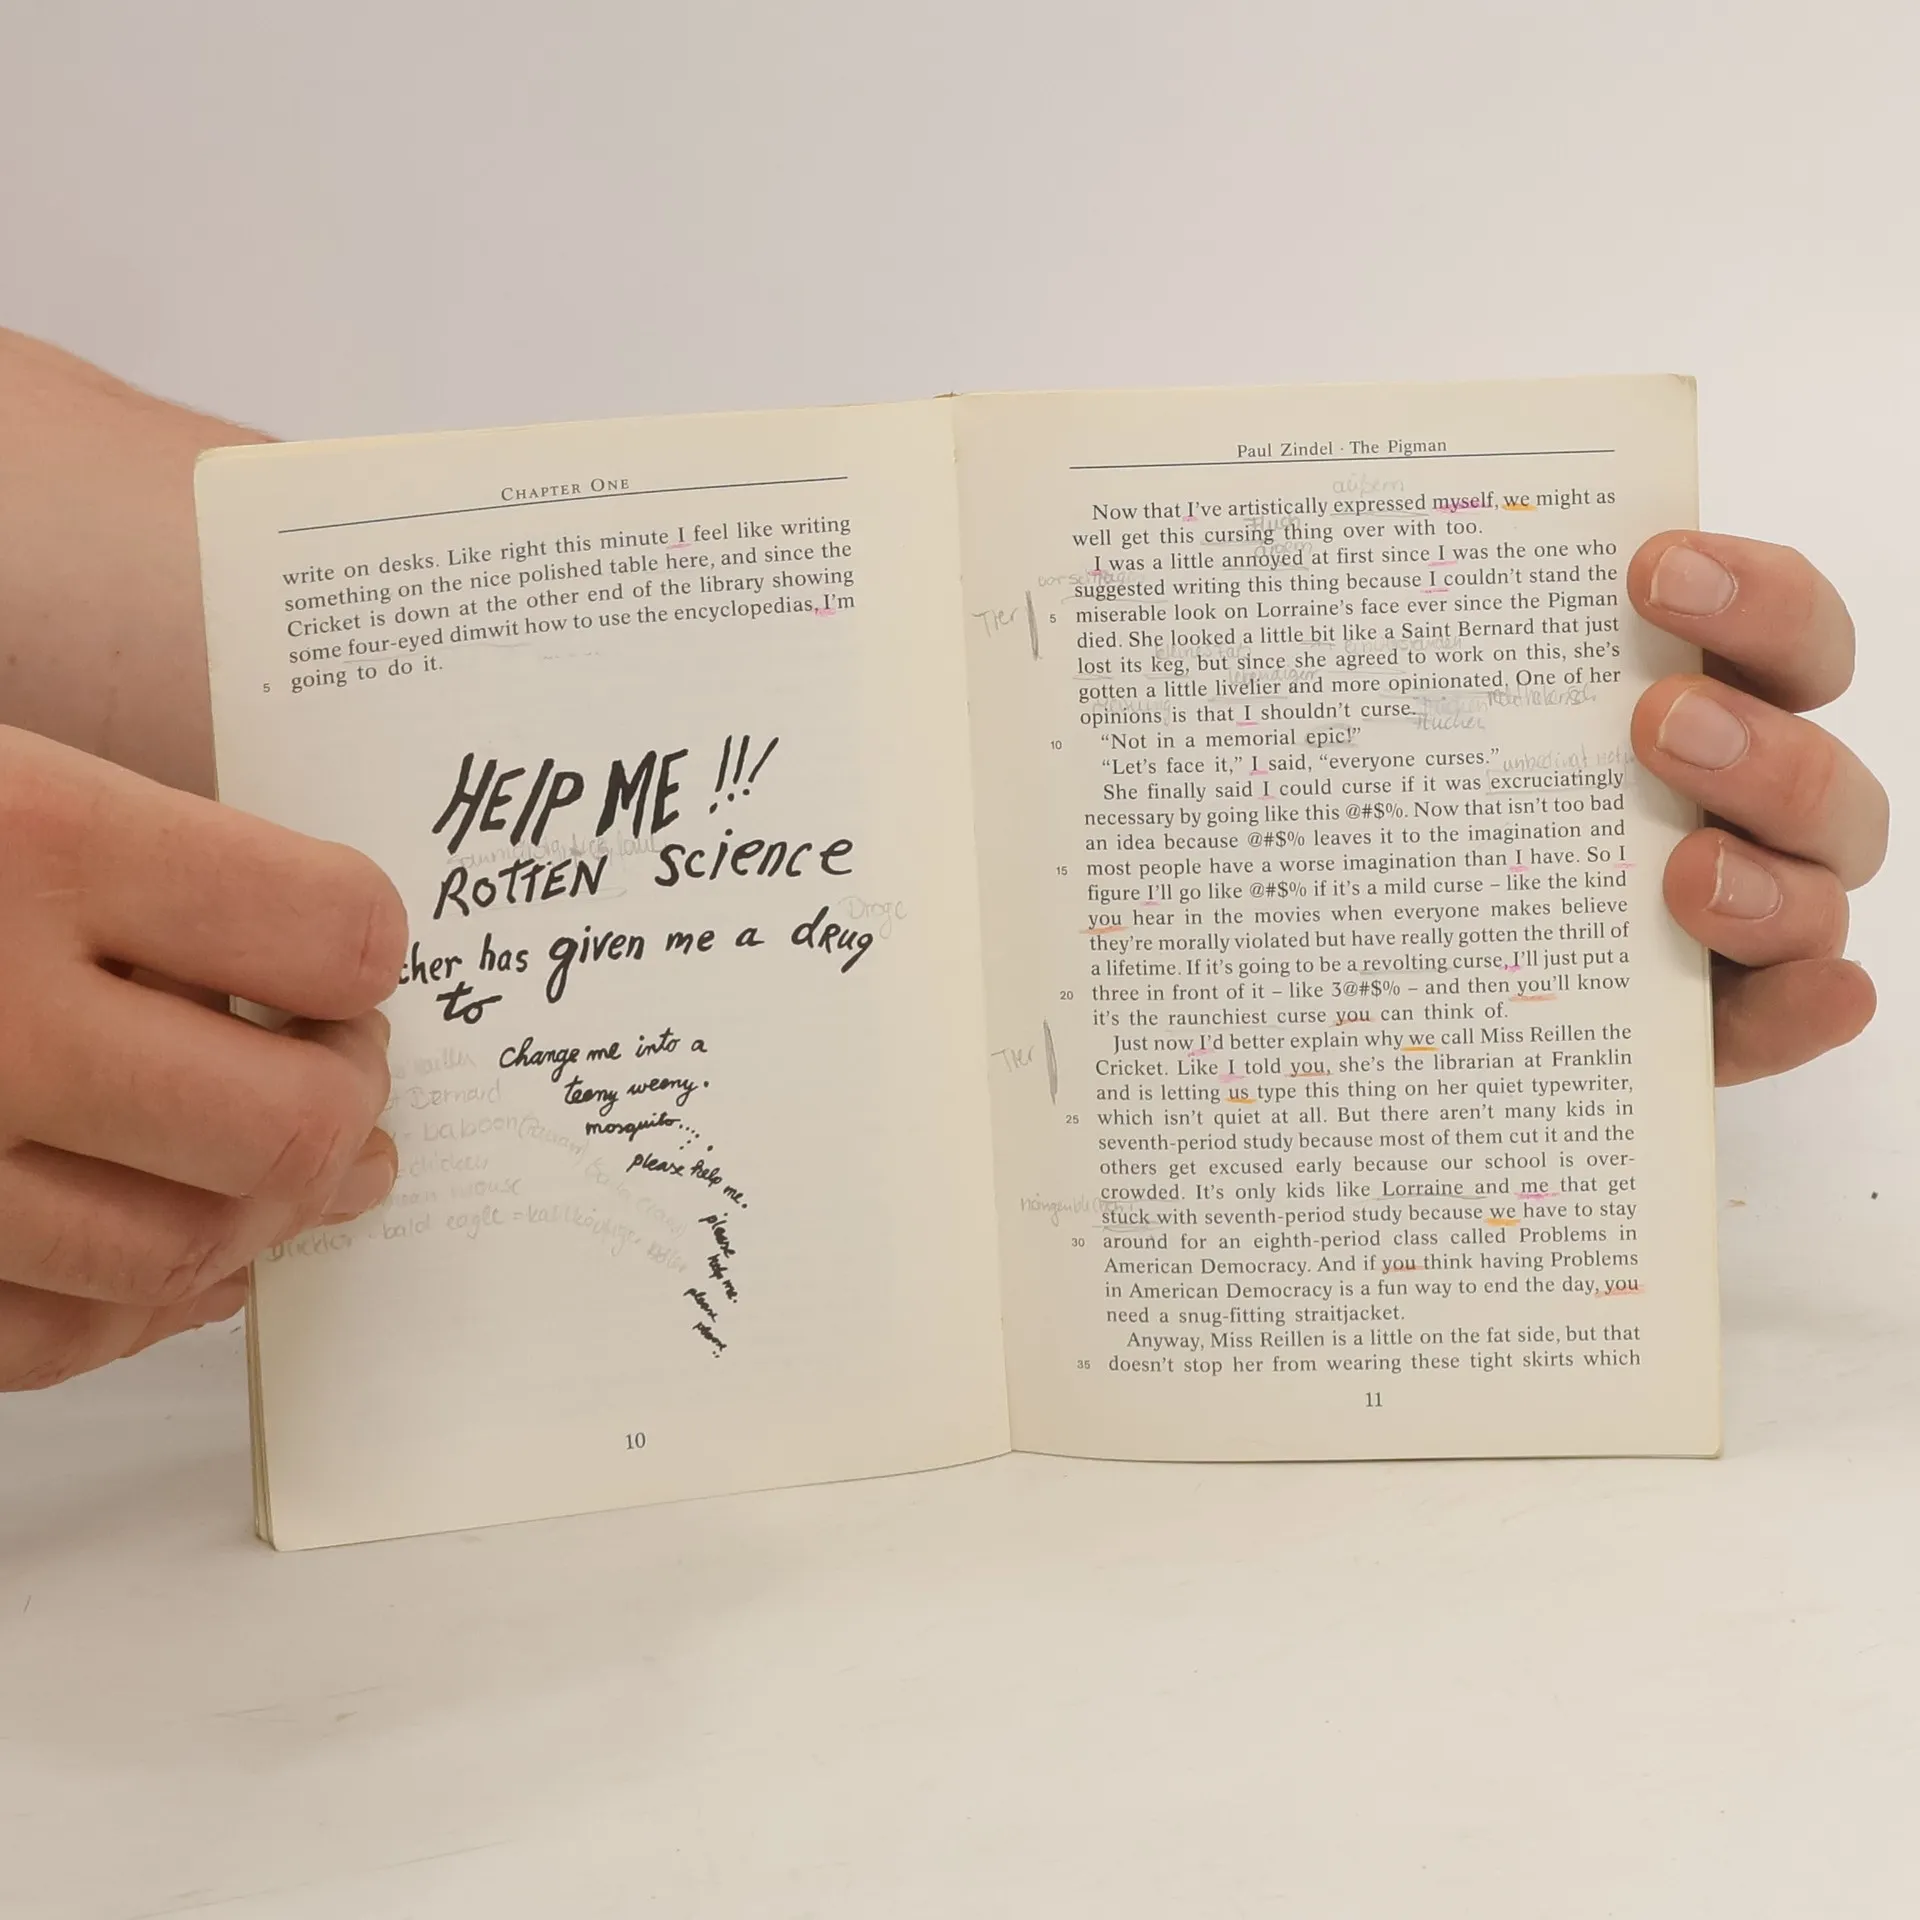 CHAPTER ONE
write on desks. Like right this minute I feel like writing
something on the nice polished table here, and since the
Cricket is down at the other end of the library showing
some four-eyed dimwit how to use the encyclopedias, I'm
5 going to do it.
HELP ME !!!
ROTTEN science
cher has given me a drug
Droge
to
change me into a
teeny weeny.
mosquito....
please help me.
please
help me.
please
please..
Bernard
baboon
bald eagle =
10
Paul Zindel · The Pigman
äußern
Now that I've artistically expressed myself, we might as
Fluch
well get this cursing thing over with too.
I was a little annoyed at first since I was the one who
suggested writing this thing because I couldn't stand the
Tier
5 miserable look on Lorraine's face ever since the Pigman
died. She looked a little bit like a Saint Bernard that just
lost its keg, but since she agreed to work on this, she's
gotten a little livelier and more opinionated. One of her
opinions is that I shouldn't curse.
10 “Not in a memorial epic!”
“Let's face it,” I said, “everyone curses.”
unbedingt
She finally said I could curse if it was excruciatingly
necessary by going like this @#$%. Now that isn't too bad
an idea because @#$% leaves it to the imagination and
15 most people have a worse imagination than I have. So I
figure I'll go like @#$% if it's a mild curse – like the kind
you hear in the movies when everyone makes believe
they're morally violated but have really gotten the thrill of
a lifetime. If it's going to be a revolting curse, I'll just put a
20 three in front of it – like 3@#$% – and then you'll know
it's the raunchiest curse you can think of.
Just now I'd better explain why we call Miss Reillen the
Tier
Cricket. Like I told you, she's the librarian at Franklin
and is letting us type this thing on her quiet typewriter,
25 which isn't quiet at all. But there aren't many kids in
seventh-period study because most of them cut it and the
others get excused early because our school is over-
crowded. It's only kids like Lorraine and me that get
stuck with seventh-period study because we have to stay
30 around for an eighth-period class called Problems in
American Democracy. And if you think having Problems
in American Democracy is a fun way to end the day, you
need a snug-fitting straitjacket.
Anyway, Miss Reillen is a little on the fat side, but that
35 doesn't stop her from wearing these tight skirts which
11